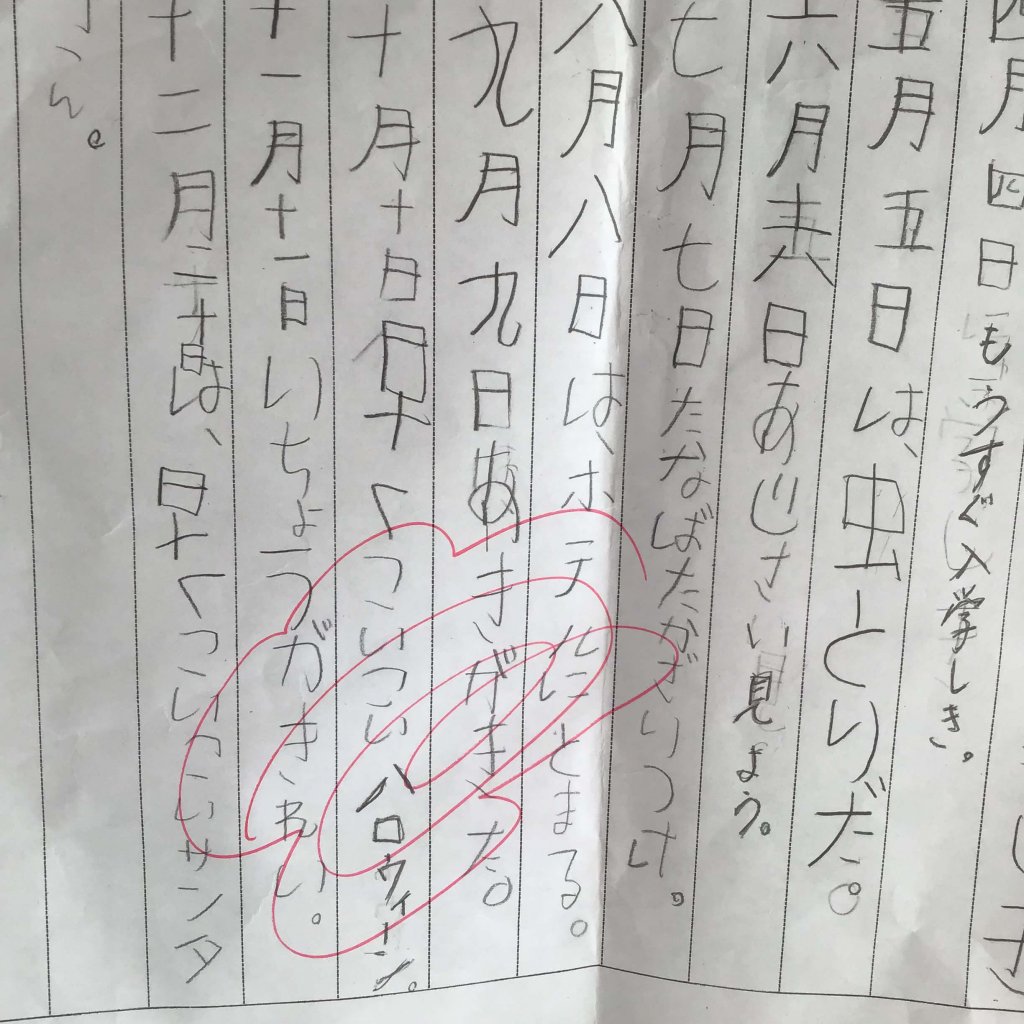 四月四日もうすぐ入学しき。
五月五日は、虫とりだ。
六月六日あじさい見よう。
七月七日たなばたかざりつけ。
八月八日は、ホテルにとまる。
九月九日あきがきた。
十月十日早くこいこいハロウィーン。
十一月十一日いちょうがきれい。
十二月二十日は、早くこいこいサンタ
さん。